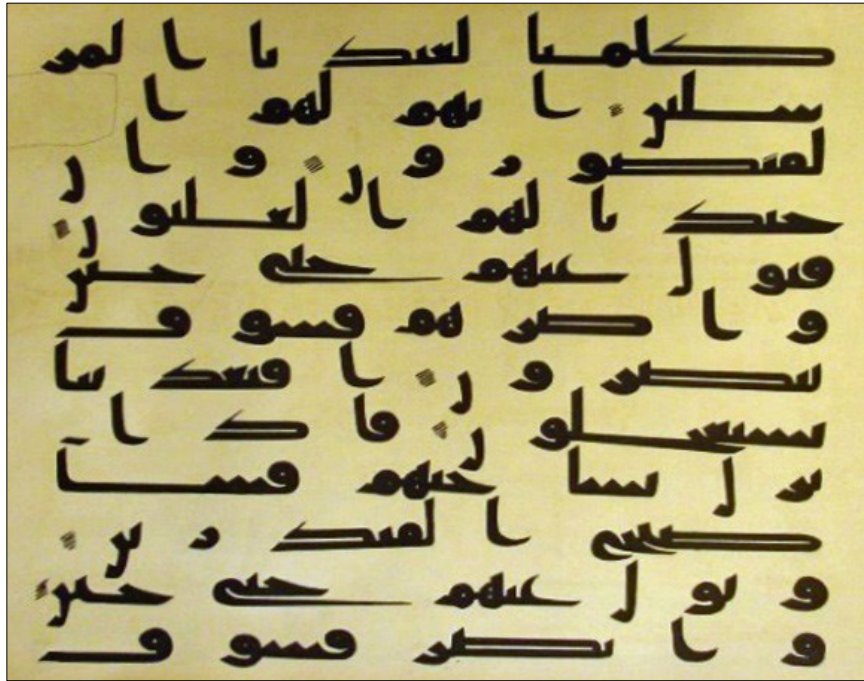 كلمتنا لعبدنا المر
سلين انهم لهم ا
لمنصورون وان
جندنا لهم الغلبون
فتول عنهم حتى حين
وابصرهم فسوف
يبصرون افبعذبنا
يستعجلون فاذا
نزل بساحتهم فسا
صبح المنذرين
وتول عنهم حتى حين
وابصر فسوف